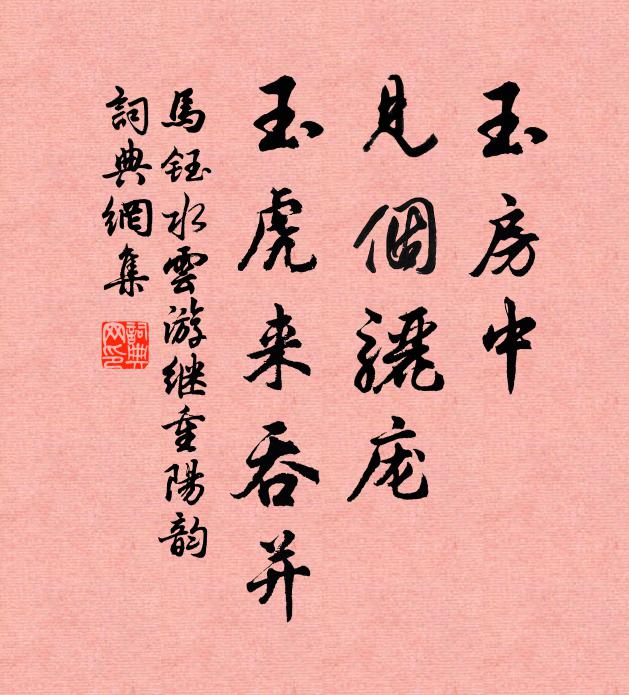 玉房中
見個驪庞
玉虎来吞并
馬鈺水雲游继重陽韵
詞典網集
詞典网印